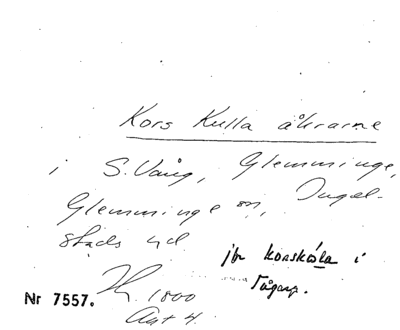 Kors Kulla åkrarne
i S. Vång, Glemminge,
Glemminge sn, Ingel-
stads hd
jfr korskåla i
Tågarp.
Nr 7557. 1800
Akt 4.